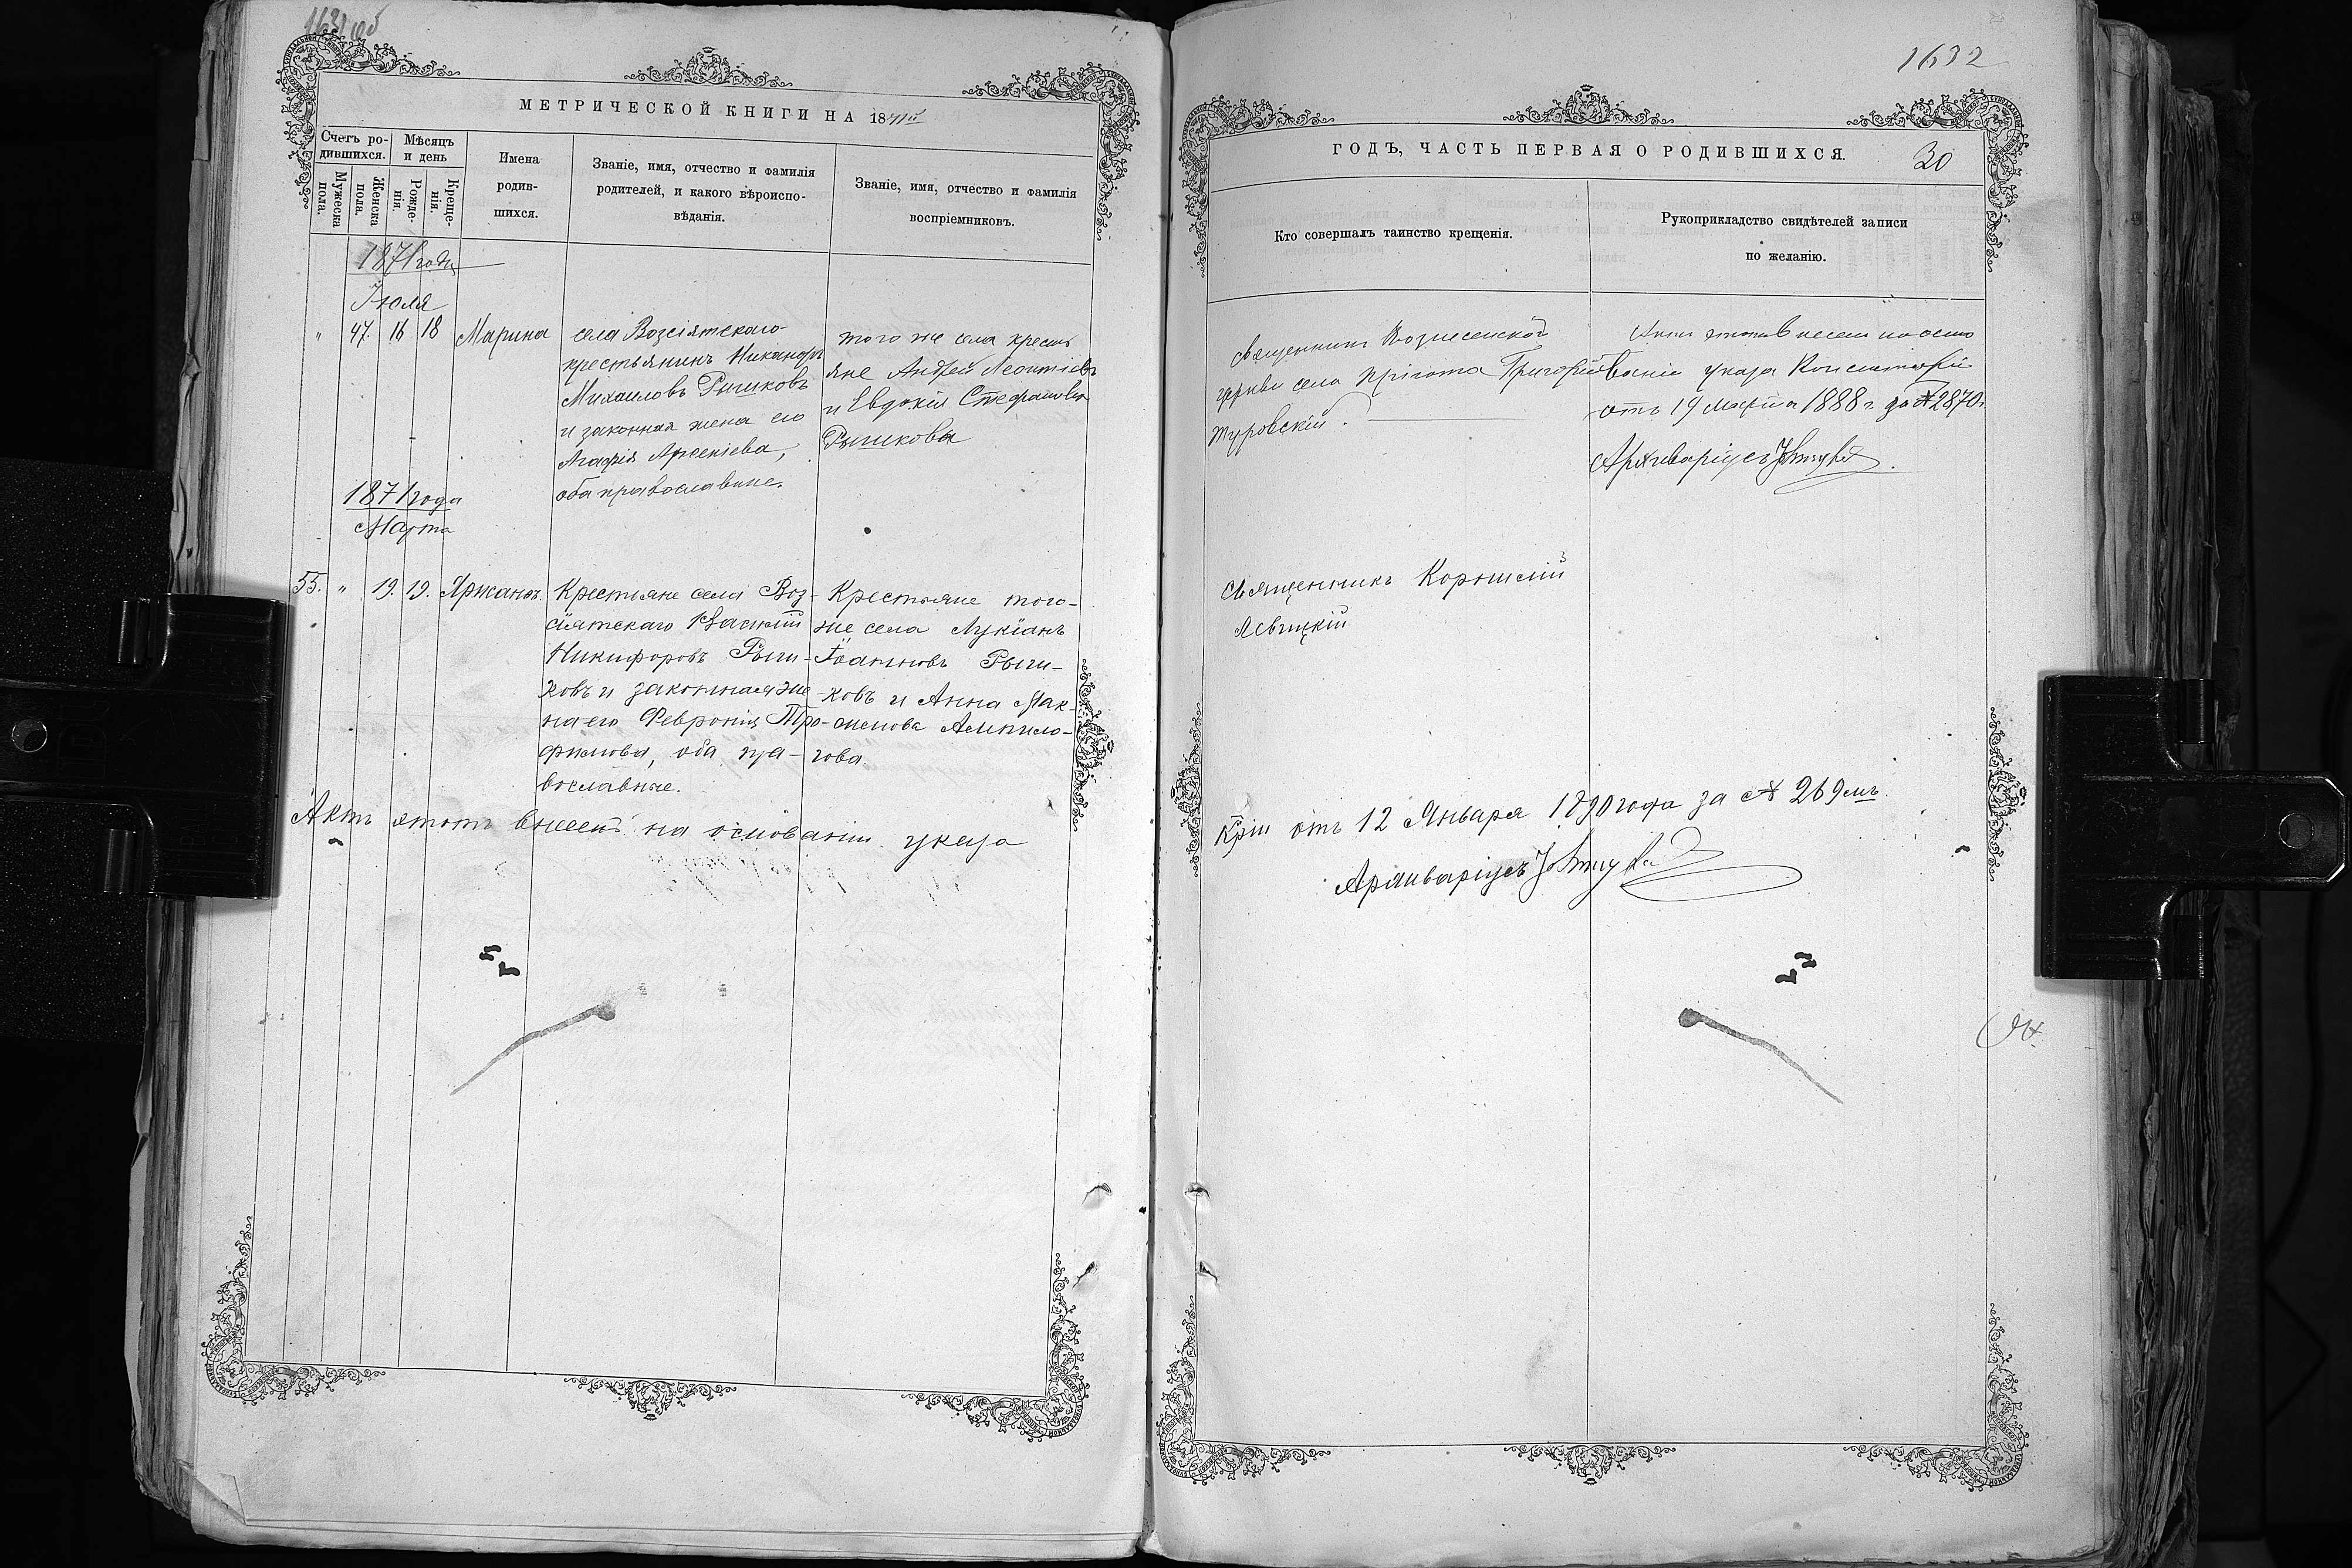 1631 об
МЕТРИЧЕСКОЙ КНИГИ НА 1871й
Счетъ ро-
дившихся.
Мѣсяцъ
и день
Мужеска
пола.
Женска
пола.
Рожде-
нія.
Креще-
нія.
Имена
родив-
шихся.
Званіе, имя, отчество и фамилія
родителей, и какого вѣроиспо-
вѣданія.
Званіе, имя, отчество и фамилія
воспріемниковъ.
1871 года
Іюля
" 47. 16 18 Марина
села Возсіятскаго
крестьянинъ Никандръ
Михаиловъ Рышковъ
и законная жена его
Агафія Арсеніева,
оба православные.
того же села кресть
яне Андрей Леонтіевъ
и Евдокія Стефанова
Рышковы
1871 года
Марта
55. " 19. 19.
Крестьяне села Воз-
сіятскаго Василій
Никифоровъ Рыш-
ковъ и законная же-
на его Февронія Тро-
фимова, оба пра-
вославные.
Крестьяне того-
же села Лукіанъ
Іоанновъ Рыш-
ковъ и Анна Мак-
симова
гова
Актъ этотъ внесенъ на основаніи указа
1632
ГОДЪ, ЧАСТЬ ПЕРВАЯ О РОДИВШИХСЯ.
30
Кто совершалъ таинство крещенія.
Рукоприкладство свидѣтелей записи
по желанію.
священникъ Вознесенской
церкви села Григорій
Туровскій.
Актъ этотъ внесенъ на осно
ваніи указа Консисторіи
отъ 19 Марта 1888 г. за № 2870.
Архиваріусъ
Священникъ
Левицкій
К̃ріи отъ 12 Января 1890 года за № 269мъ.
Архиваріусъ